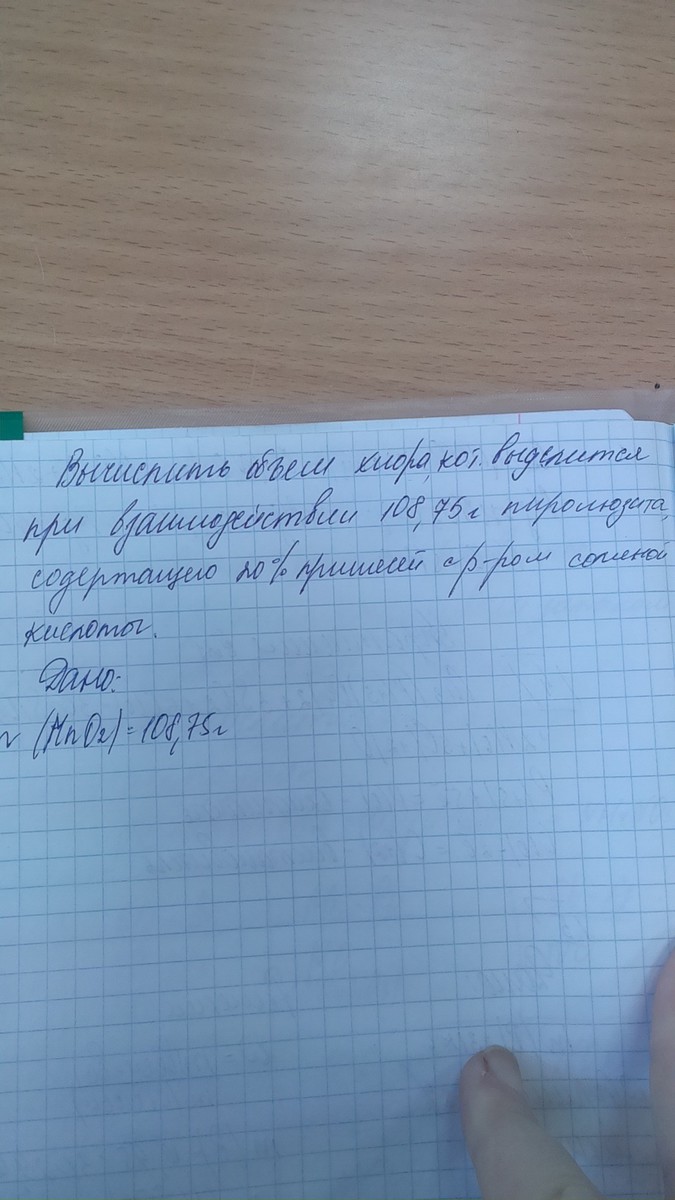 Вычислить объем хлора, кот. выделится
при взаимодействии 108,75 г пиролюзита,
содержащего 20% примесей с р-ром соляной
кислоты.
Дано:
(MnO2) = 108,75 г